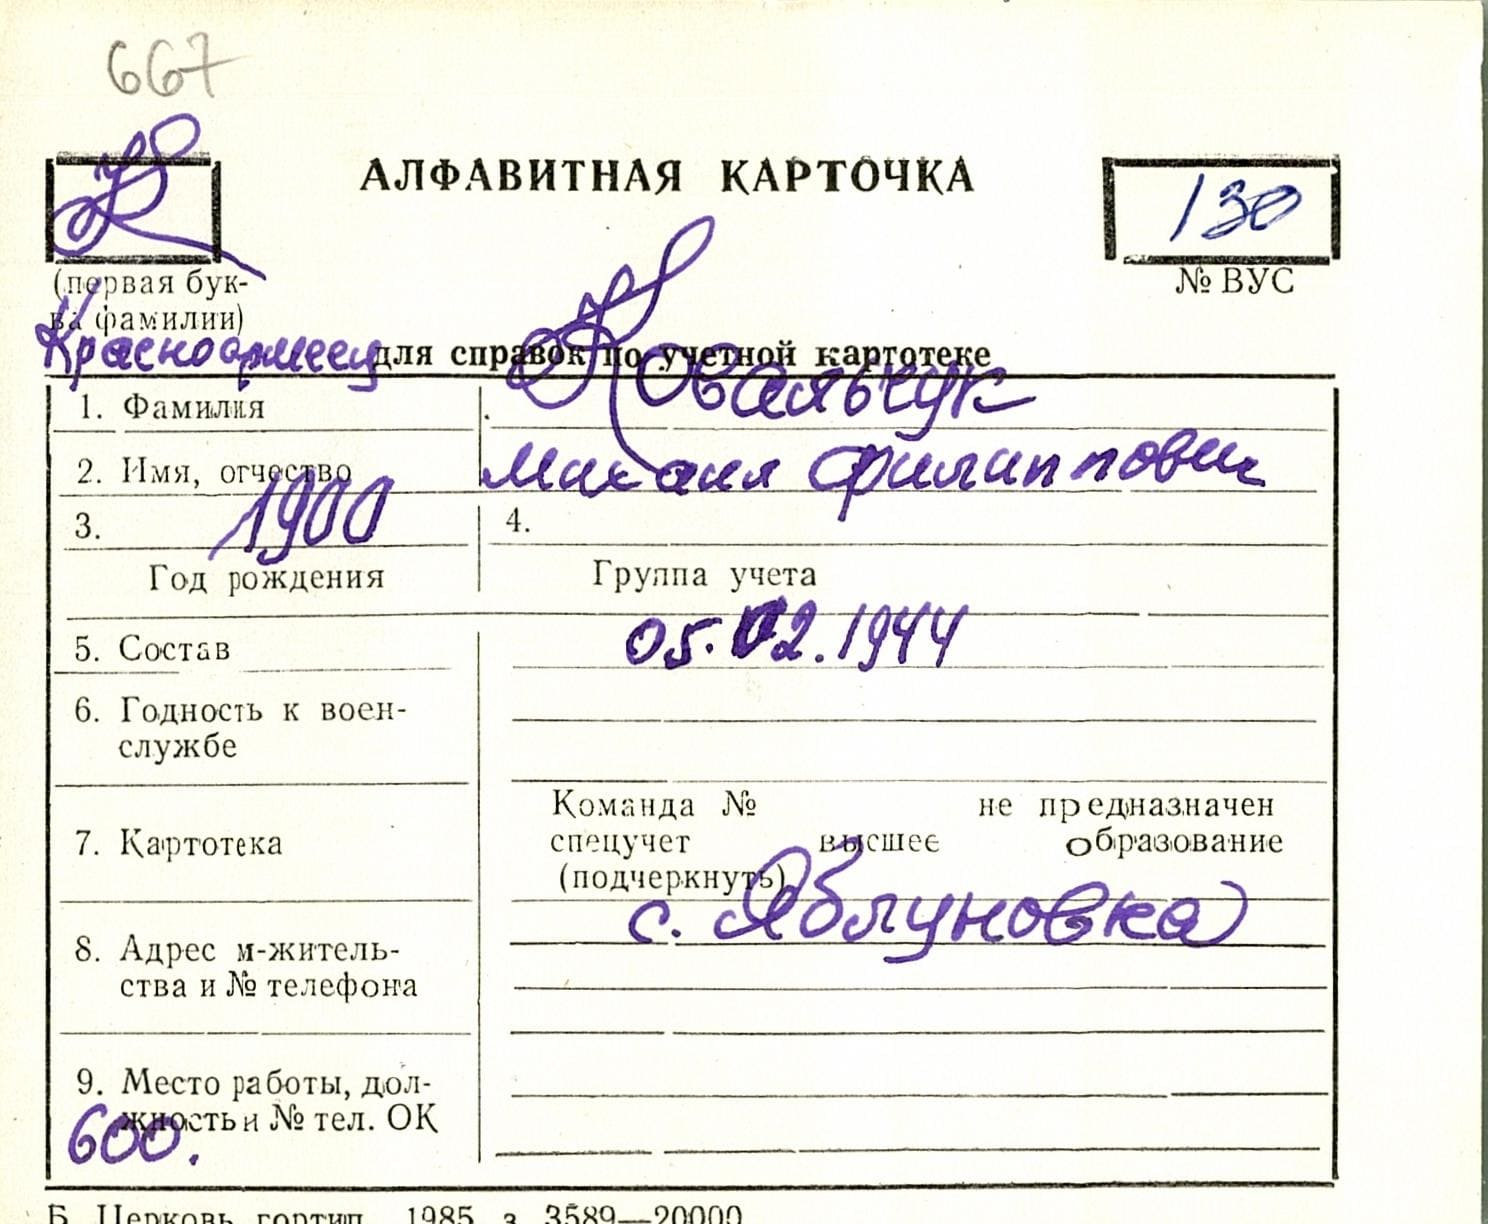 667
К
АЛФАВИТНАЯ КАРТОЧКА
130
(первая бук-
ва фамилии)
№ ВУС
Красноармеец
для справок по учетной картотеке
1. Фамилия Ковальчук
2. Имя, отчество Михаил Филиппович
3. 1900 4.
Год рождения Группа учета
5. Состав 05.02.1944
6. Годность к воен-
службе
7. Картотека
Команда № не предназначен
спецучет высшее образование
(подчеркнуть)
с. Яблуновка
8. Адрес м-житель-
ства и № телефона
9. Место работы, дол-
жность и № тел. ОК
600.
Б. Церковь, гортип. 1985 з. 3589—20000